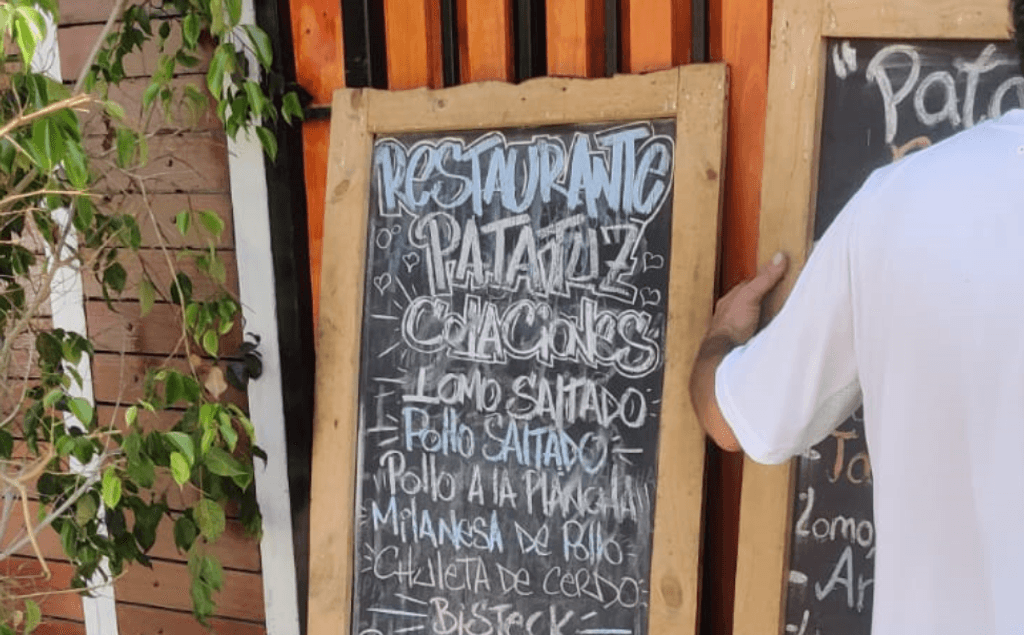 RESTAURANTE
PATATUZ
COLACIONES
LOMO SALTADO
Pollo SALTADO
Pollo A lA PlANCHA
MilANESA DE Pollo
CHULETA DE CERDO
BISTECK
"Pata
Lomo